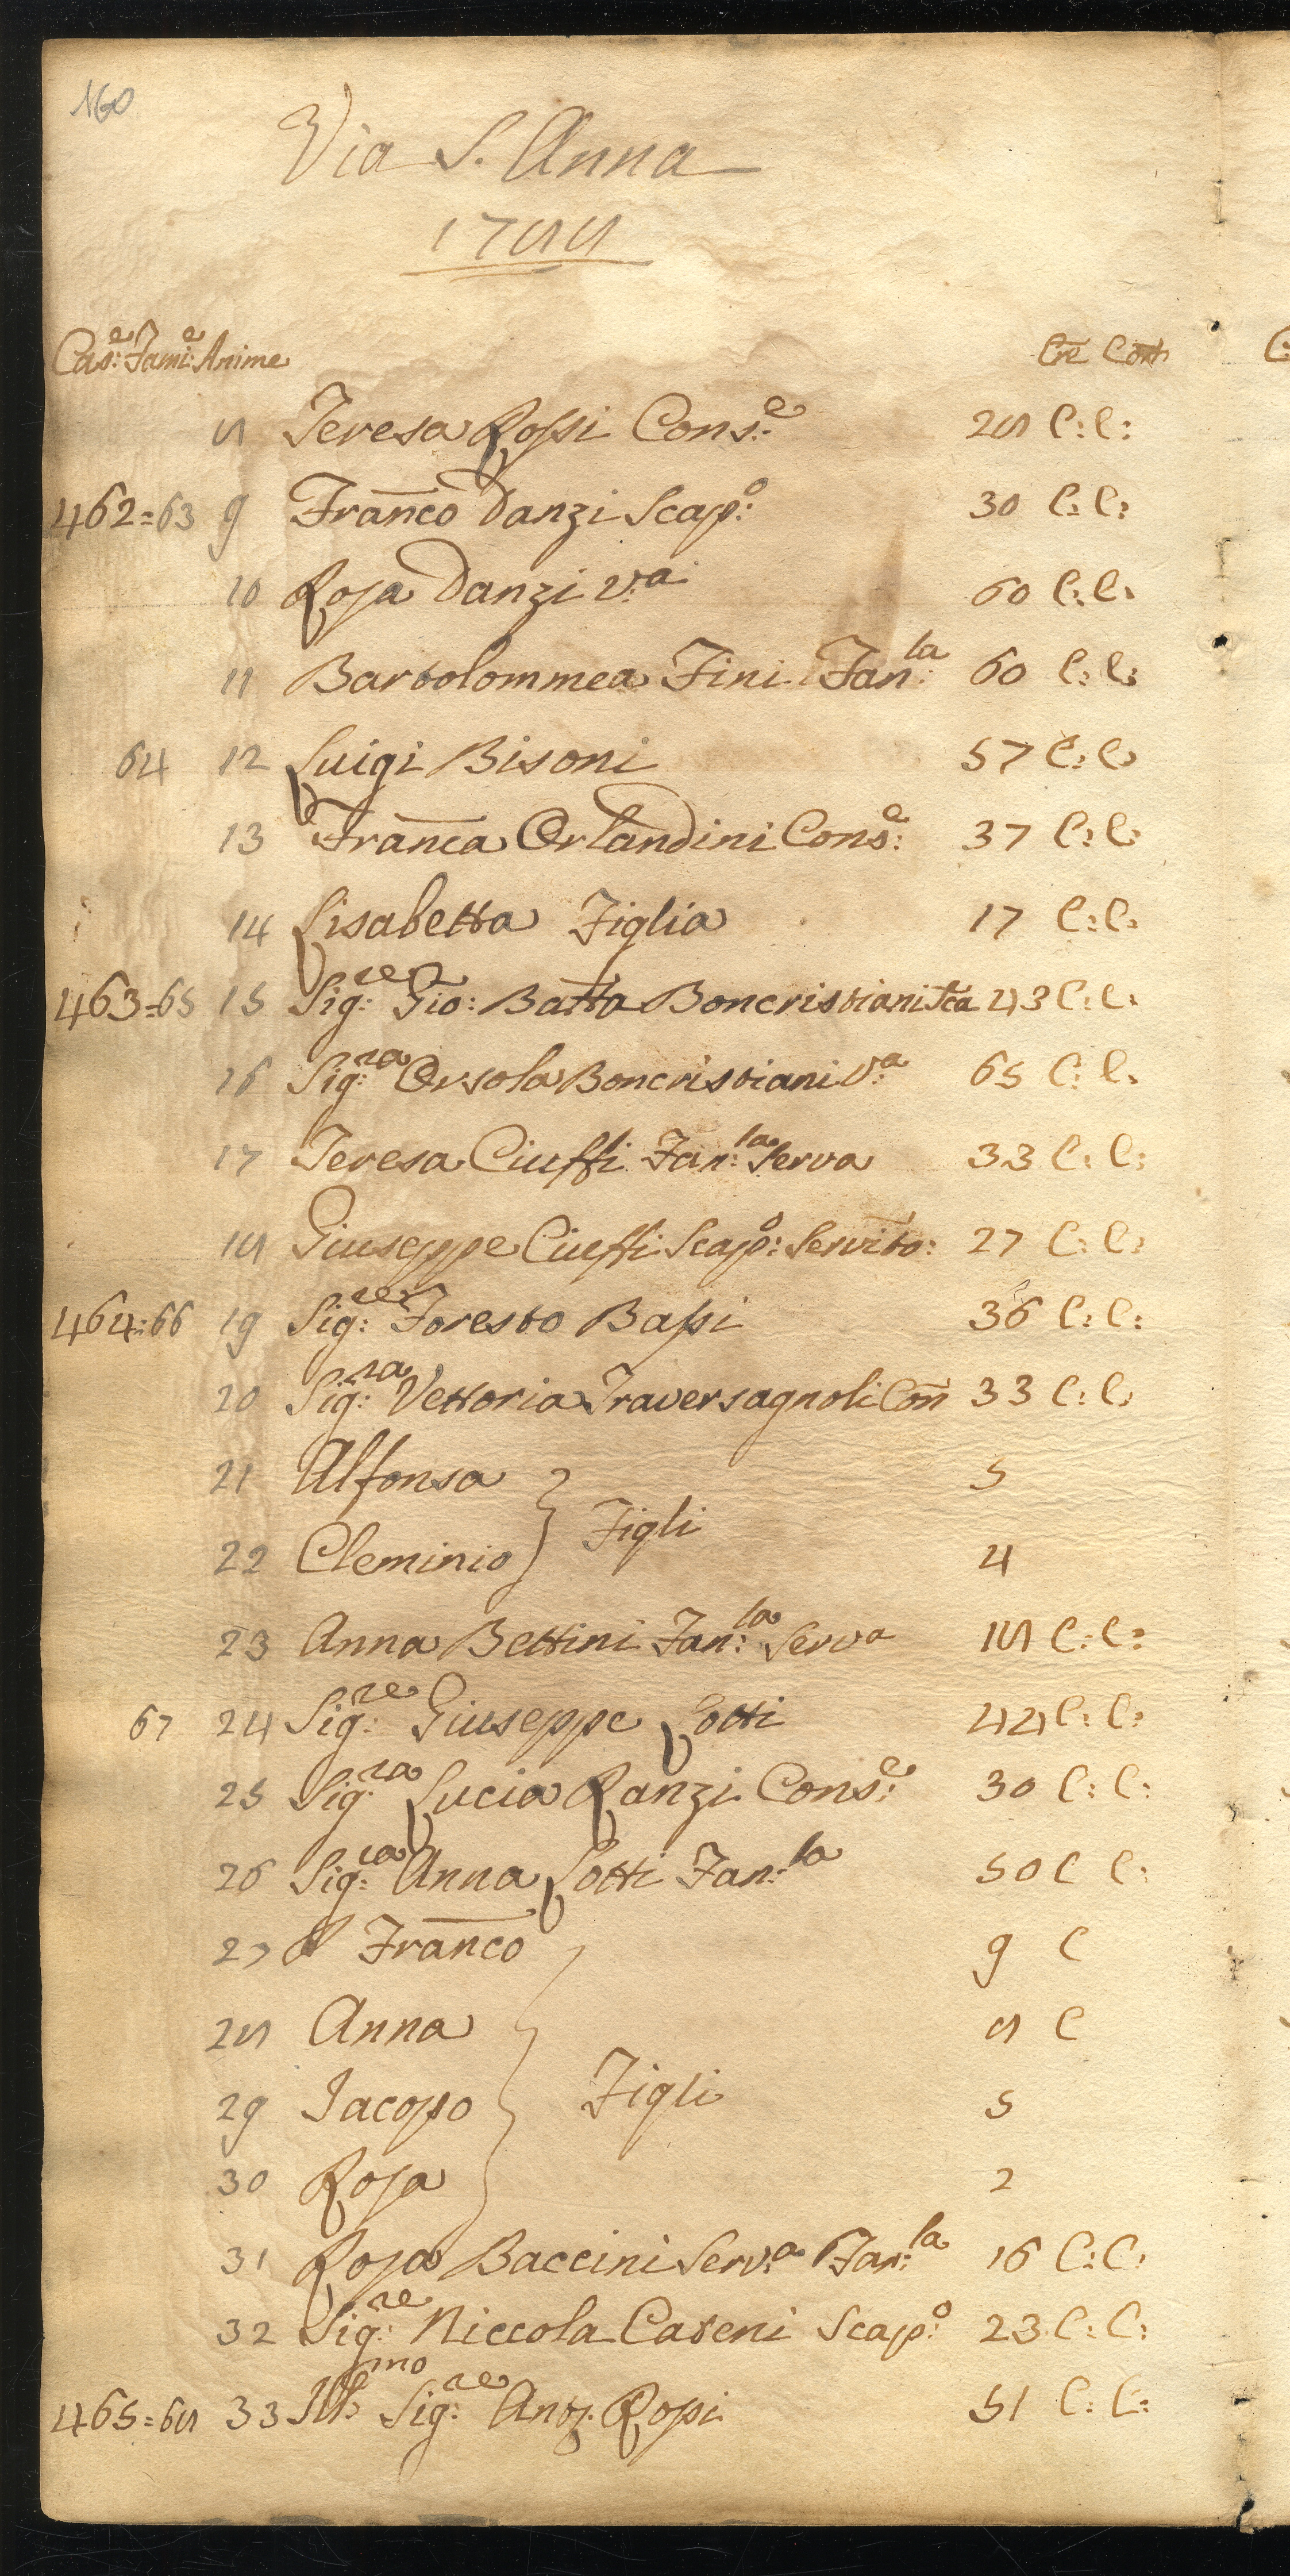 160
Via S. Anna
1788
Cas:e Fami:e Anime Cre Con
8 Teresa Rossi Cons:e 28 C: C:
462=63 9 Franco Danzi Scap:o 30 C: C:
10 Rosa Danzi V:a 60 C: C:
11 Bartolommea Fini Fan:la 60 C: C:
64 12 Luigi Bisoni 57 C: C:
13 Franca Orlandini Cons:e 37 C: C:
14 Lisabetta Figlia 17 C: C:
463=65 15 Sig:re Gio: Batta Boncristiani Sca 43 C: C:
16 Sig:ra Orsola Boncristiani V:a 65 C: C:
17 Teresa Ciuffi Fan:la Serva 33 C: C:
18 Giuseppe Ciuffi Scap:o Servito: 27 C: C:
464=66 19 Sig:re Foresto Bassi 36 C: C:
20 Sig:ra Vettoria Traversagnoli Con 33 C: C:
21 Alfonsa 5
Figli
22 Cleminio 4
23 Anna Bettini Fan:la Serva 18 C: C:
67 24 Sig:re Giuseppe Lotti 44 C: C:
25 Sig:ra Lucia Ranzi Cons:e 30 C: C:
26 Sig:ra Anna Lotti Fan:la 50 C C:
27 Franco 9 C
28 Anna 8 C
29 Jacopo Figli 5
30 Rosa 2
31 Rosa Baccini Serv:a Fan:la 16 C: C:
32 Sig:re Niccola Caseni Scap:o 23 C: C:
465=68 33 Ill:mo Sig:re Anto. Rossi 51 C: C: